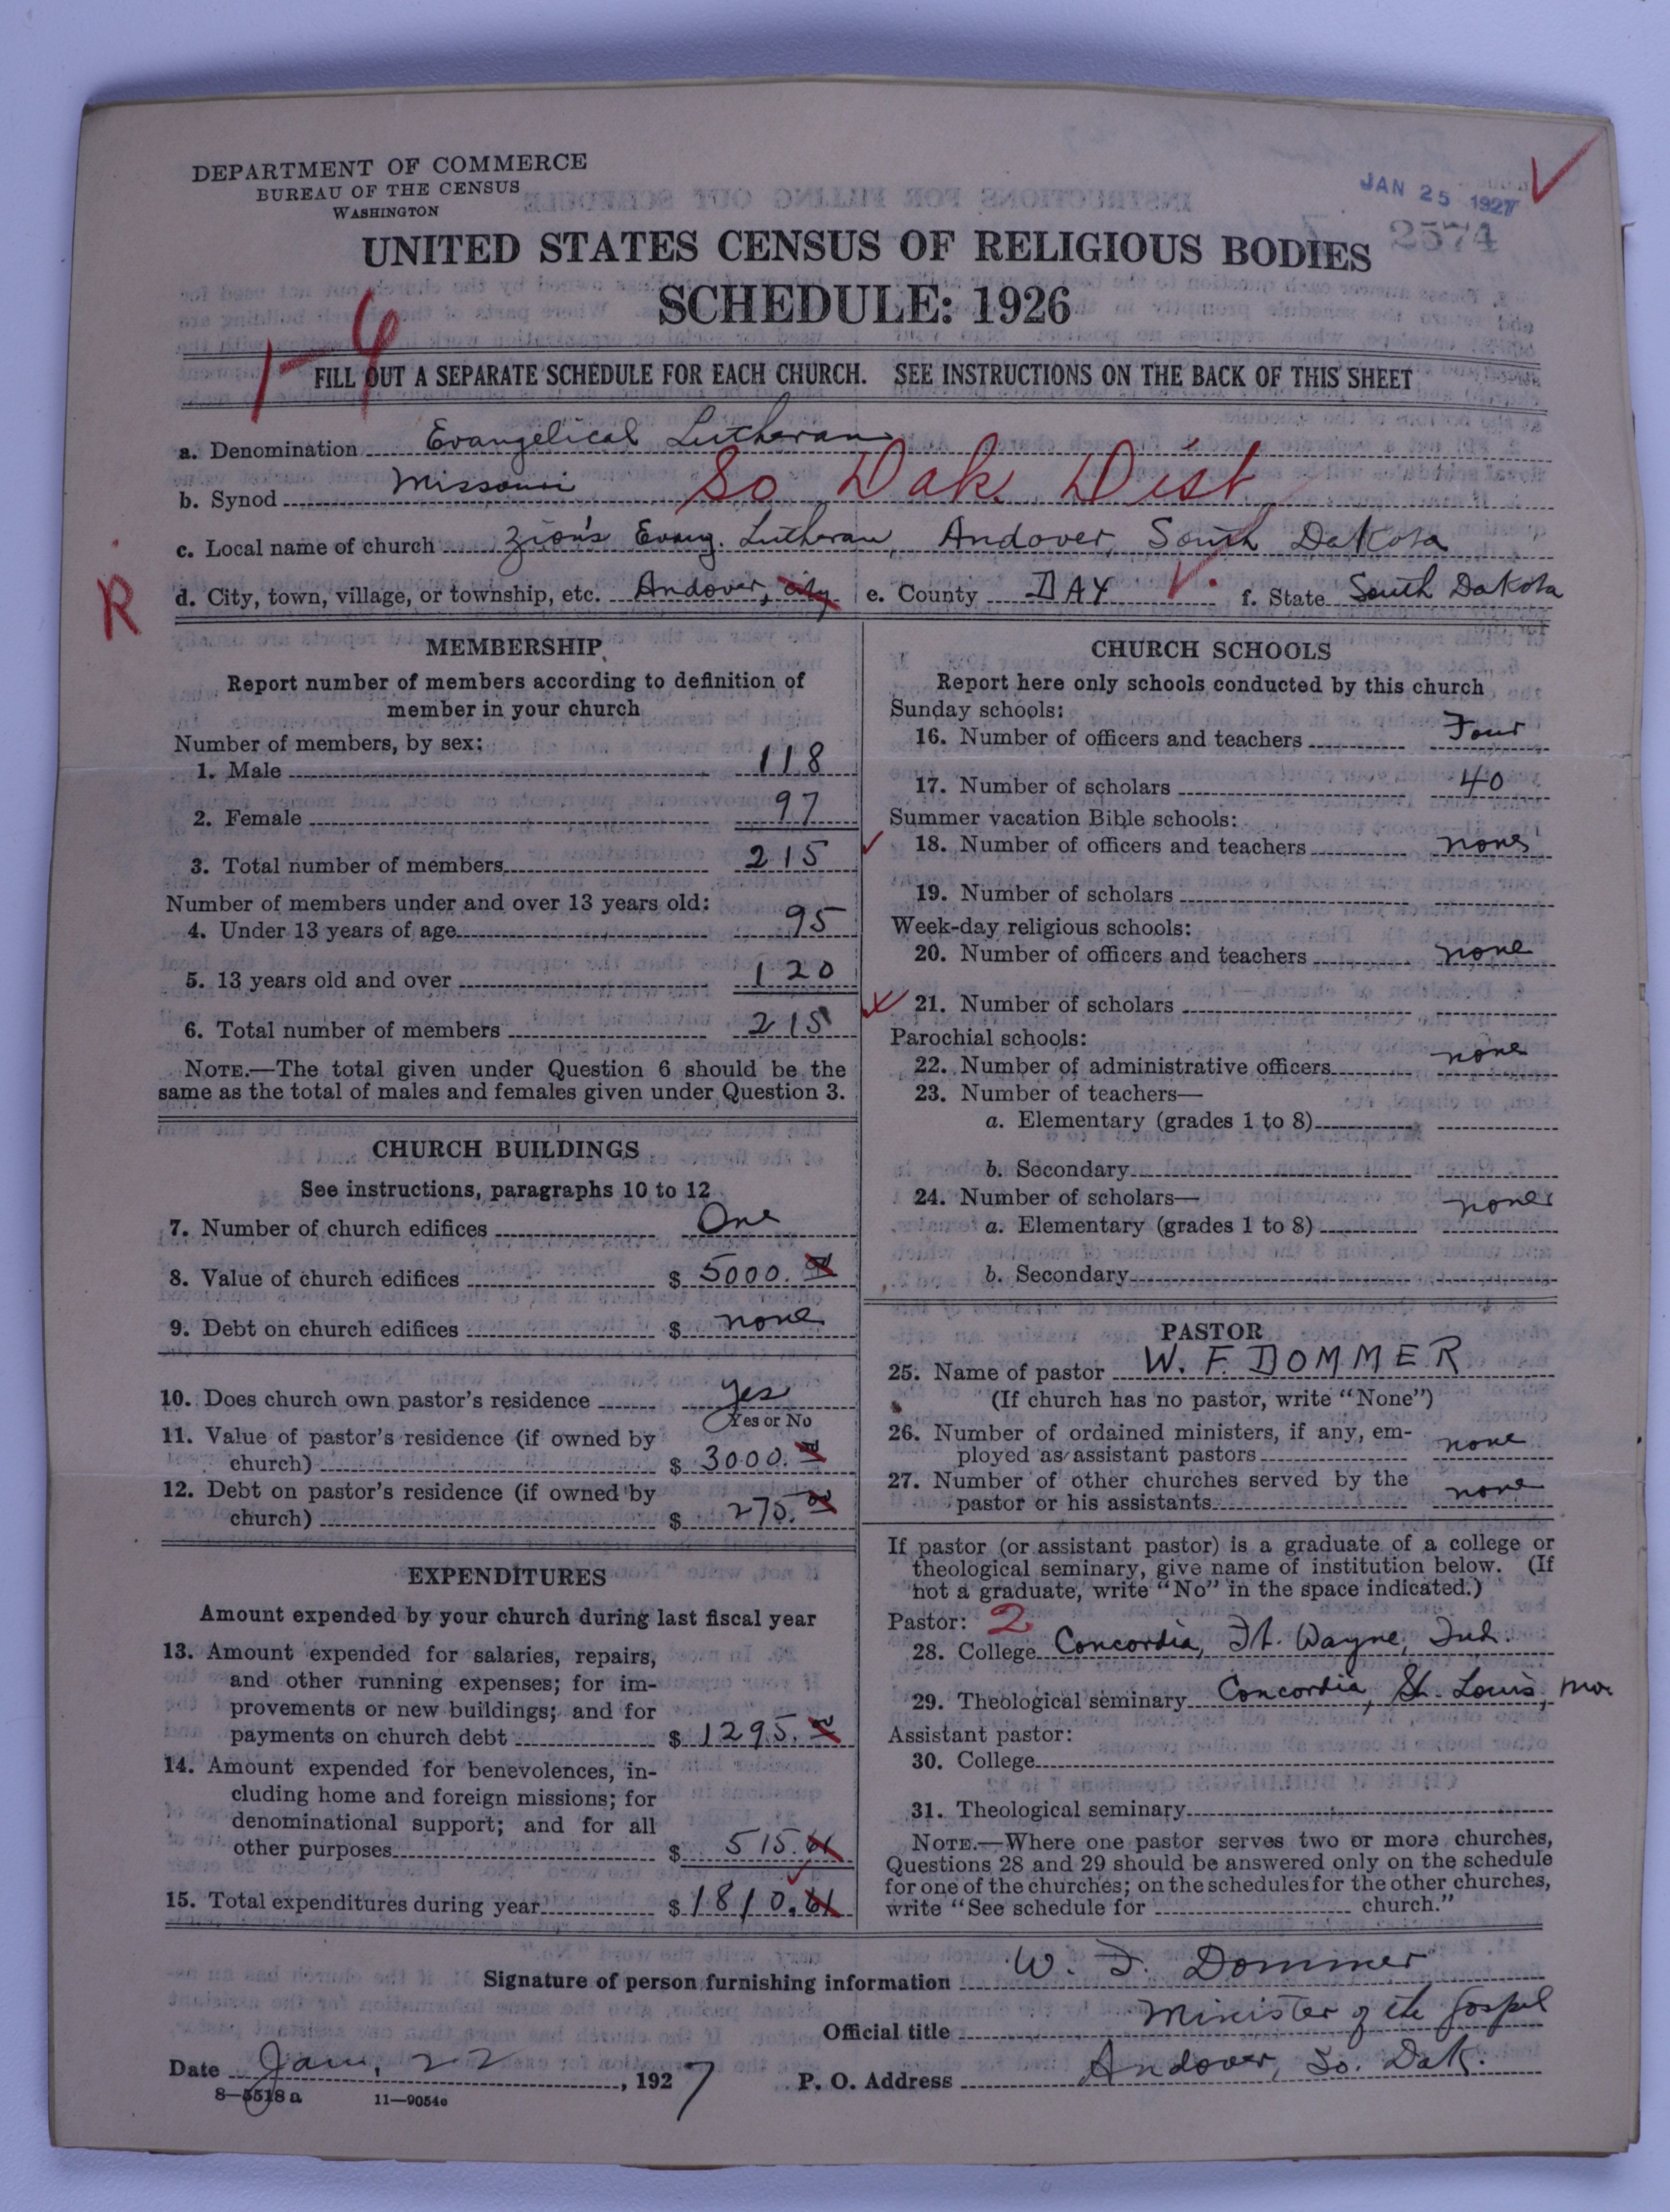 DEPARTMENT OF COMMERCE
BUREAU OF THE CENSUS
WASHINGTON
JAN 25 1927
2574
UNITED STATES CENSUS OF RELIGIOUS BODIES
SCHEDULE: 1926
1-6
FILL OUT A SEPARATE SCHEDULE FOR EACH CHURCH. SEE INSTRUCTIONS ON THE BACK OF THIS SHEET
a. Denomination Evangelical Lutheran
b. Synod Missouri So Dak. Dist
c. Local name of church Zion's Evang. Lutheran, Andover, South Dakota
R
d. City, town, village, or township, etc. Andover, city e. County DAY f. State South Dakota
MEMBERSHIP
Report number of members according to definition of
member in your church
Number of members, by sex:
1. Male 118
2. Female 97
3. Total number of members 215
Number of members under and over 13 years old:
4. Under 13 years of age 95
5. 13 years old and over 120
6. Total number of members 215
NOTE.—The total given under Question 6 should be the
same as the total of males and females given under Question 3.
CHURCH BUILDINGS
See instructions, paragraphs 10 to 12
7. Number of church edifices One
8. Value of church edifices $ 5000.
9. Debt on church edifices $ none
10. Does church own pastor's residence yes
Yes or No
11. Value of pastor's residence (if owned by
church) $ 3000.
12. Debt on pastor's residence (if owned by
church) $ 275.
EXPENDITURES
Amount expended by your church during last fiscal year
13. Amount expended for salaries, repairs,
and other running expenses; for im-
provements or new buildings; and for
payments on church debt $ 1295.
14. Amount expended for benevolences, in-
cluding home and foreign missions; for
denominational support; and for all
other purposes $ 515.61
15. Total expenditures during year $ 1810.61
CHURCH SCHOOLS
Report here only schools conducted by this church
Sunday schools:
16. Number of officers and teachers Four
17. Number of scholars 40
Summer vacation Bible schools:
18. Number of officers and teachers none
19. Number of scholars
Week-day religious schools:
20. Number of officers and teachers none
21. Number of scholars
Parochial schools:
22. Number of administrative officers none
23. Number of teachers—
a. Elementary (grades 1 to 8)
b. Secondary
24. Number of scholars— none
a. Elementary (grades 1 to 8)
b. Secondary
PASTOR
25. Name of pastor W. F. DOMMER
(If church has no pastor, write "None")
26. Number of ordained ministers, if any, em-
ployed as assistant pastors none
27. Number of other churches served by the
pastor or his assistants none
If pastor (or assistant pastor) is a graduate of a college or
theological seminary, give name of institution below. (If
not a graduate, write "No" in the space indicated.)
Pastor: 2
28. College Concordia, Ft. Wayne, Ind.
29. Theological seminary Concordia, St. Louis, Mo.
Assistant pastor:
30. College
31. Theological seminary
NOTE.—Where one pastor serves two or more churches,
Questions 28 and 29 should be answered only on the schedule
for one of the churches; on the schedules for the other churches,
write "See schedule for church."
Signature of person furnishing information W. F. Dommer
Official title Minister of the Gospel
Date Jan. 22, 1927 P. O. Address Andover, So. Dak.
8—5518 a 11—9054c